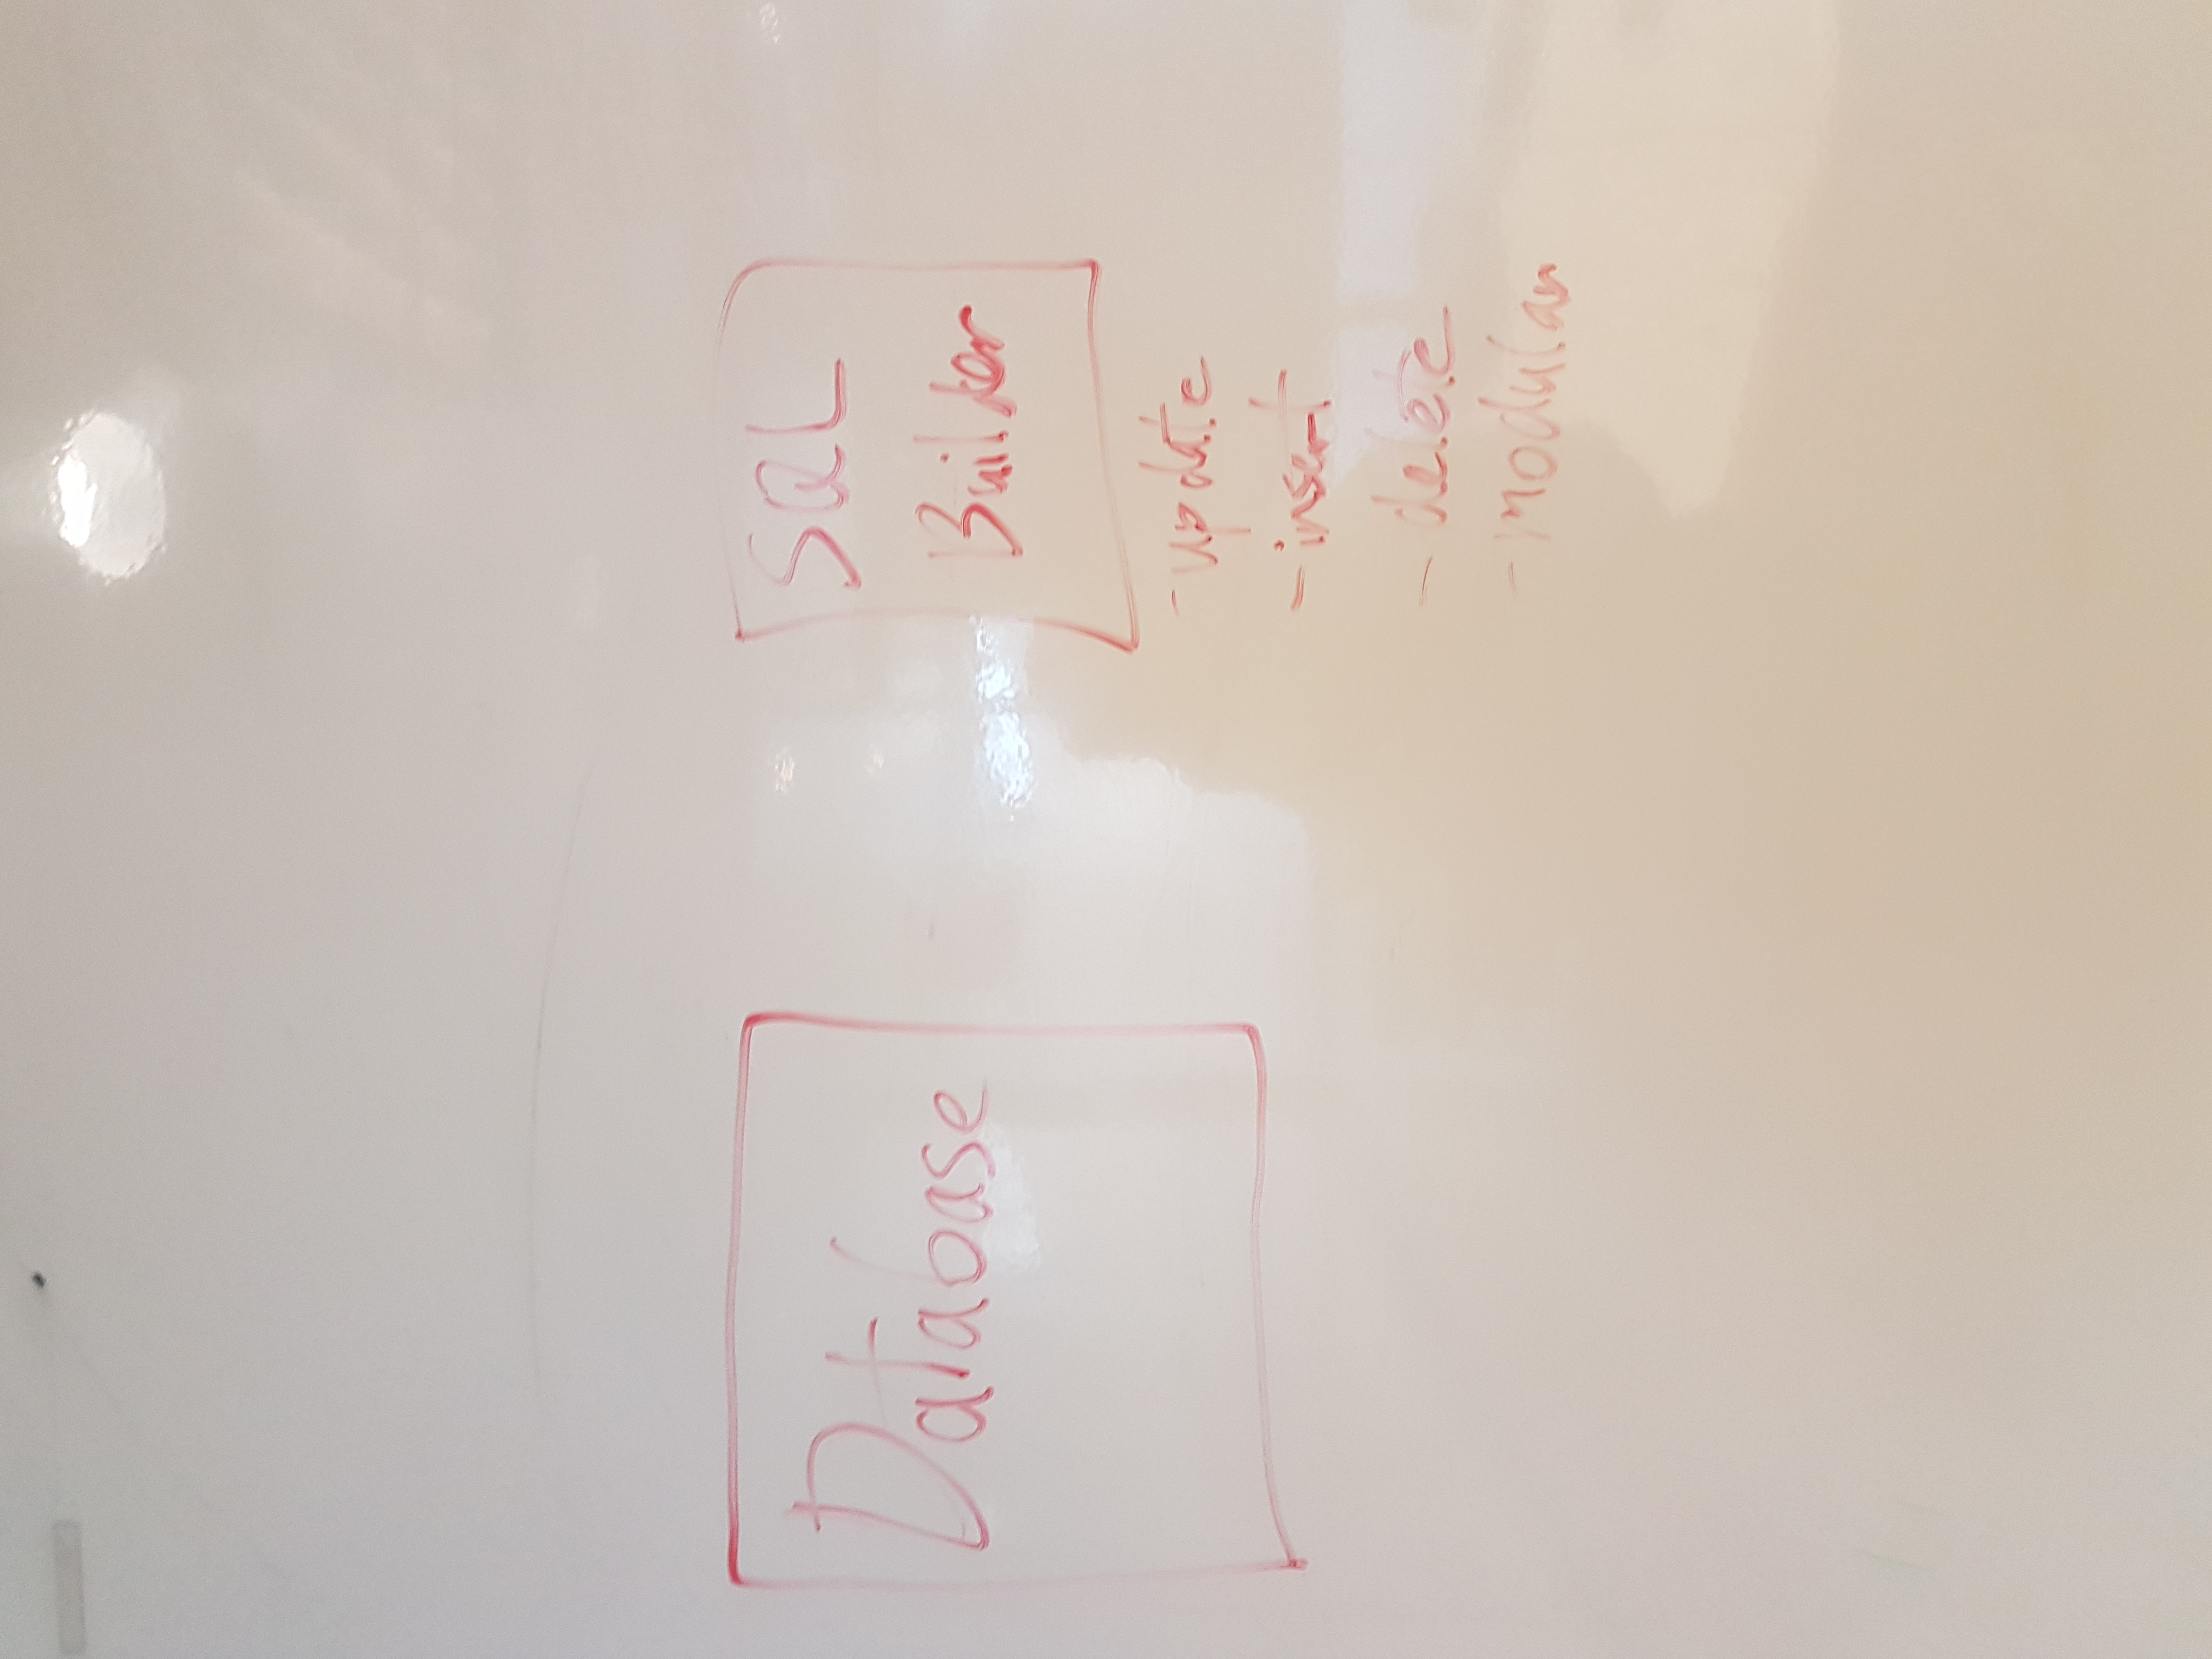 Database
SQL
Builder
- update
- insert
- delete
- modular